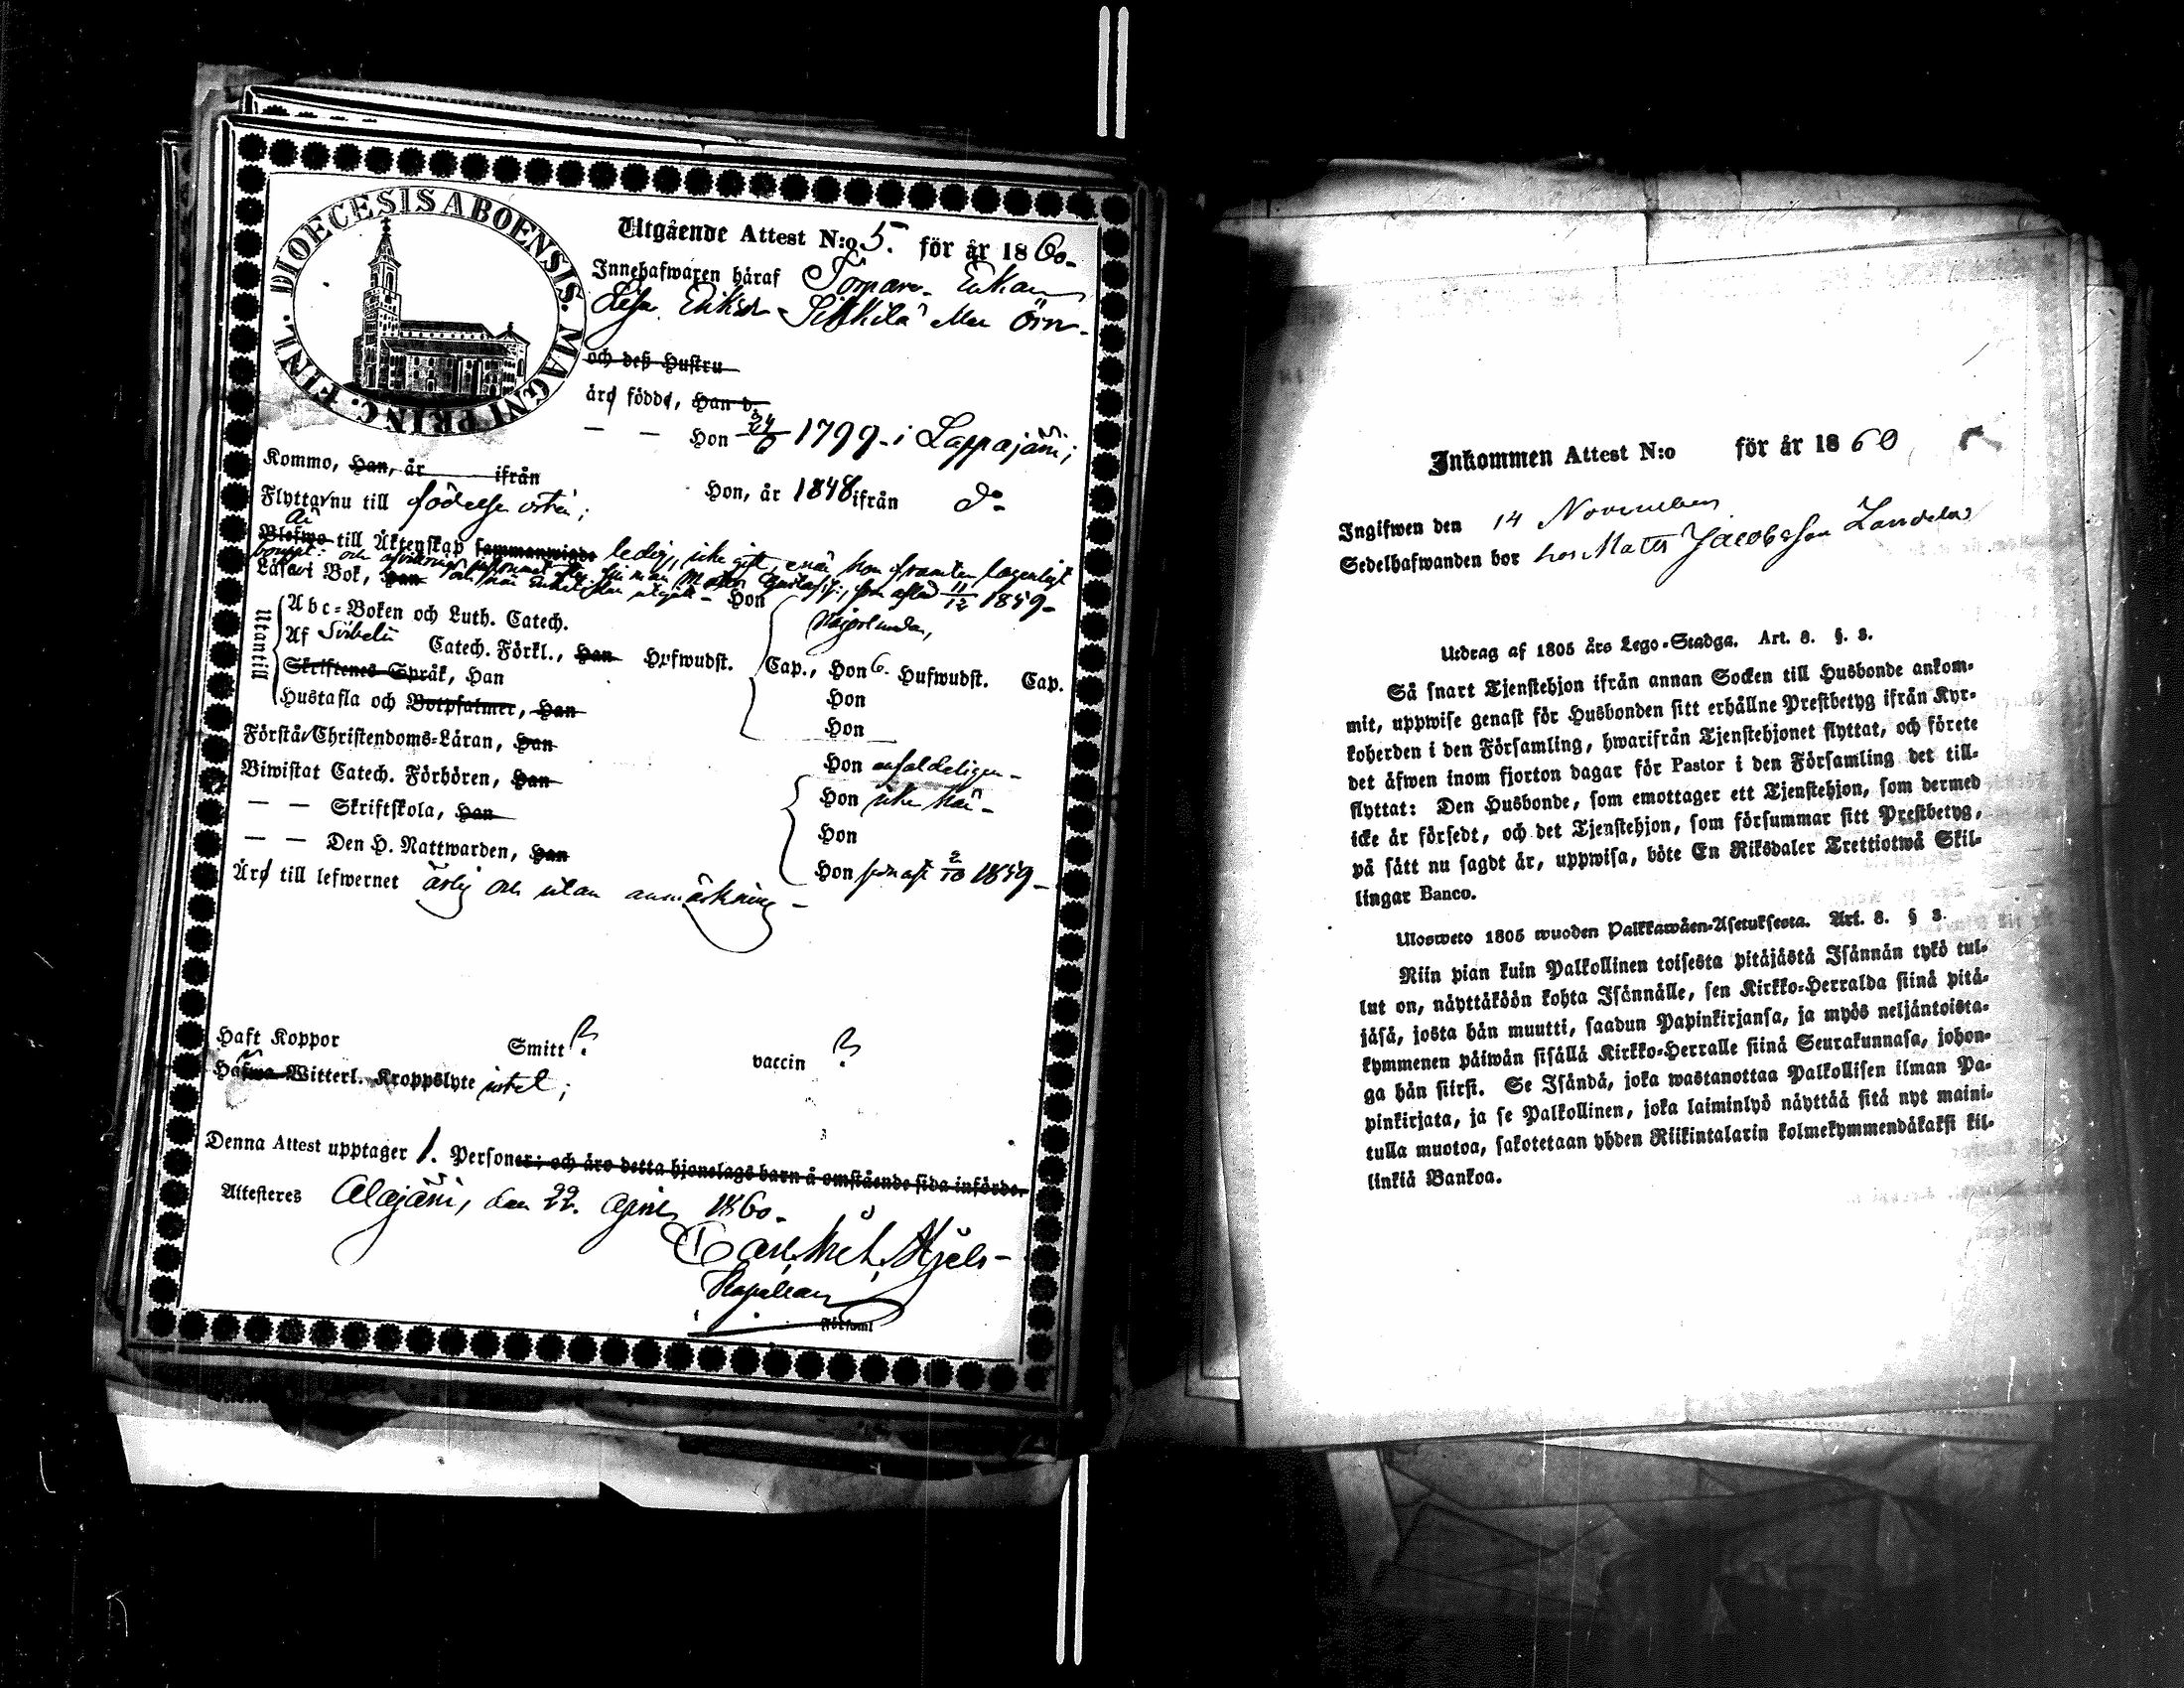 DIOECESIS ABOENSIS. MAGNI PRINC. FINL.
Utgående Attest N:o 5. för år 1860.
Innehafwaren häraf Torpare Enkan
Lisa Eriksdr Örn.
och deß Hustru
äro födde, Han d.
— — Hon 24/6 1799 i Lappajärvi;
Kommo, Han, år ifrån
Hon, år 1848 ifrån do
Flyttar nu till födelse orten;
är
Blefwo till Äktenskap sammanwigde ledig, icke gift, när hon framter lagenligt
Läser i Bok, Han Hon 11/12 1859
Utantill
Abc-Boken och Luth. Catech.
Af Svibelii Catech. Förkl., Han Hufwudst. Cap., Hon 6. Hufwudst. Cap.
Skriftenes Språk, Han Hon
Hustafla och Botpsalmer, Han Hon
Förstår Christendoms-Läran, Han Hon enfaldeligen
Biwistat Catech. Förhören, Han Hon icke här
— — Skriftskola, Han Hon
— — Den H. Nattwarden, Han Hon senast 2/10 1859
Äro till lefwernet ärlig och utan anmärkning
Haft Koppor Smitt ? vaccin ?
Witterl. Kroppslyte intet;
Denna Attest upptager 1. Personer; och äro detta hjonelags barn å omstående sida införde.
Attesteres Alajärvi, den 22. April 1860.
Carl
Kapellan
Församl
Inkommen Attest N:o för år 1860
Ingifwen den 14 November
Sedelhafwanden bor hos Matts Jacobsson
Utdrag af 1805 års Lego-Stadga. Art. 8. §. 3.
Så snart Tjenstehjon ifrån annan Socken till Husbonde ankom-
mit, uppwise genast för Husbonden sitt erhållne Prestbetyg ifrån Kyr-
koherden i den Församling, hwarifrån Tjenstehjonet flyttat, och förete
det äfwen inom fjorton dagar för Pastor i den Församling det till-
flyttat: Den Husbonde, som emottager ett Tjenstehjon, som dermed
icke är försedt, och det Tjenstehjon, som försummar sitt Prestbetyg,
på sätt nu sagdt är, uppwisa, böte En Riksdaler Trettiotwå Skil-
lingar Banco.
Ulosweto 1805 wuoden Palkkawäen-Asetuksesta. Art. 8. § 3.
Niin pian kuin Palkollinen toisesta pitäjästä Isännän tykö tul-
lut on, näyttäköön kohta Isännälle, sen Kirkko-Herralda siinä pitä-
jäsä, josta hän muutti, saadun Papinkirjansa, ja myös neljäntoista-
kymmenen päiwän sisällä Kirkko-Herralle siinä Seurakunnasa, johon-
ga hän siirsi. Se Isändä, joka wastanottaa Palkollisen ilman Pa-
pinkirjata, ja se Palkollinen, joka laiminlyö näyttää sitä nyt maini-
tulla muotoa, sakotetaan yhden Riikintalarin kolmekymmendäkaksi kil-
linkiä Bankoa.